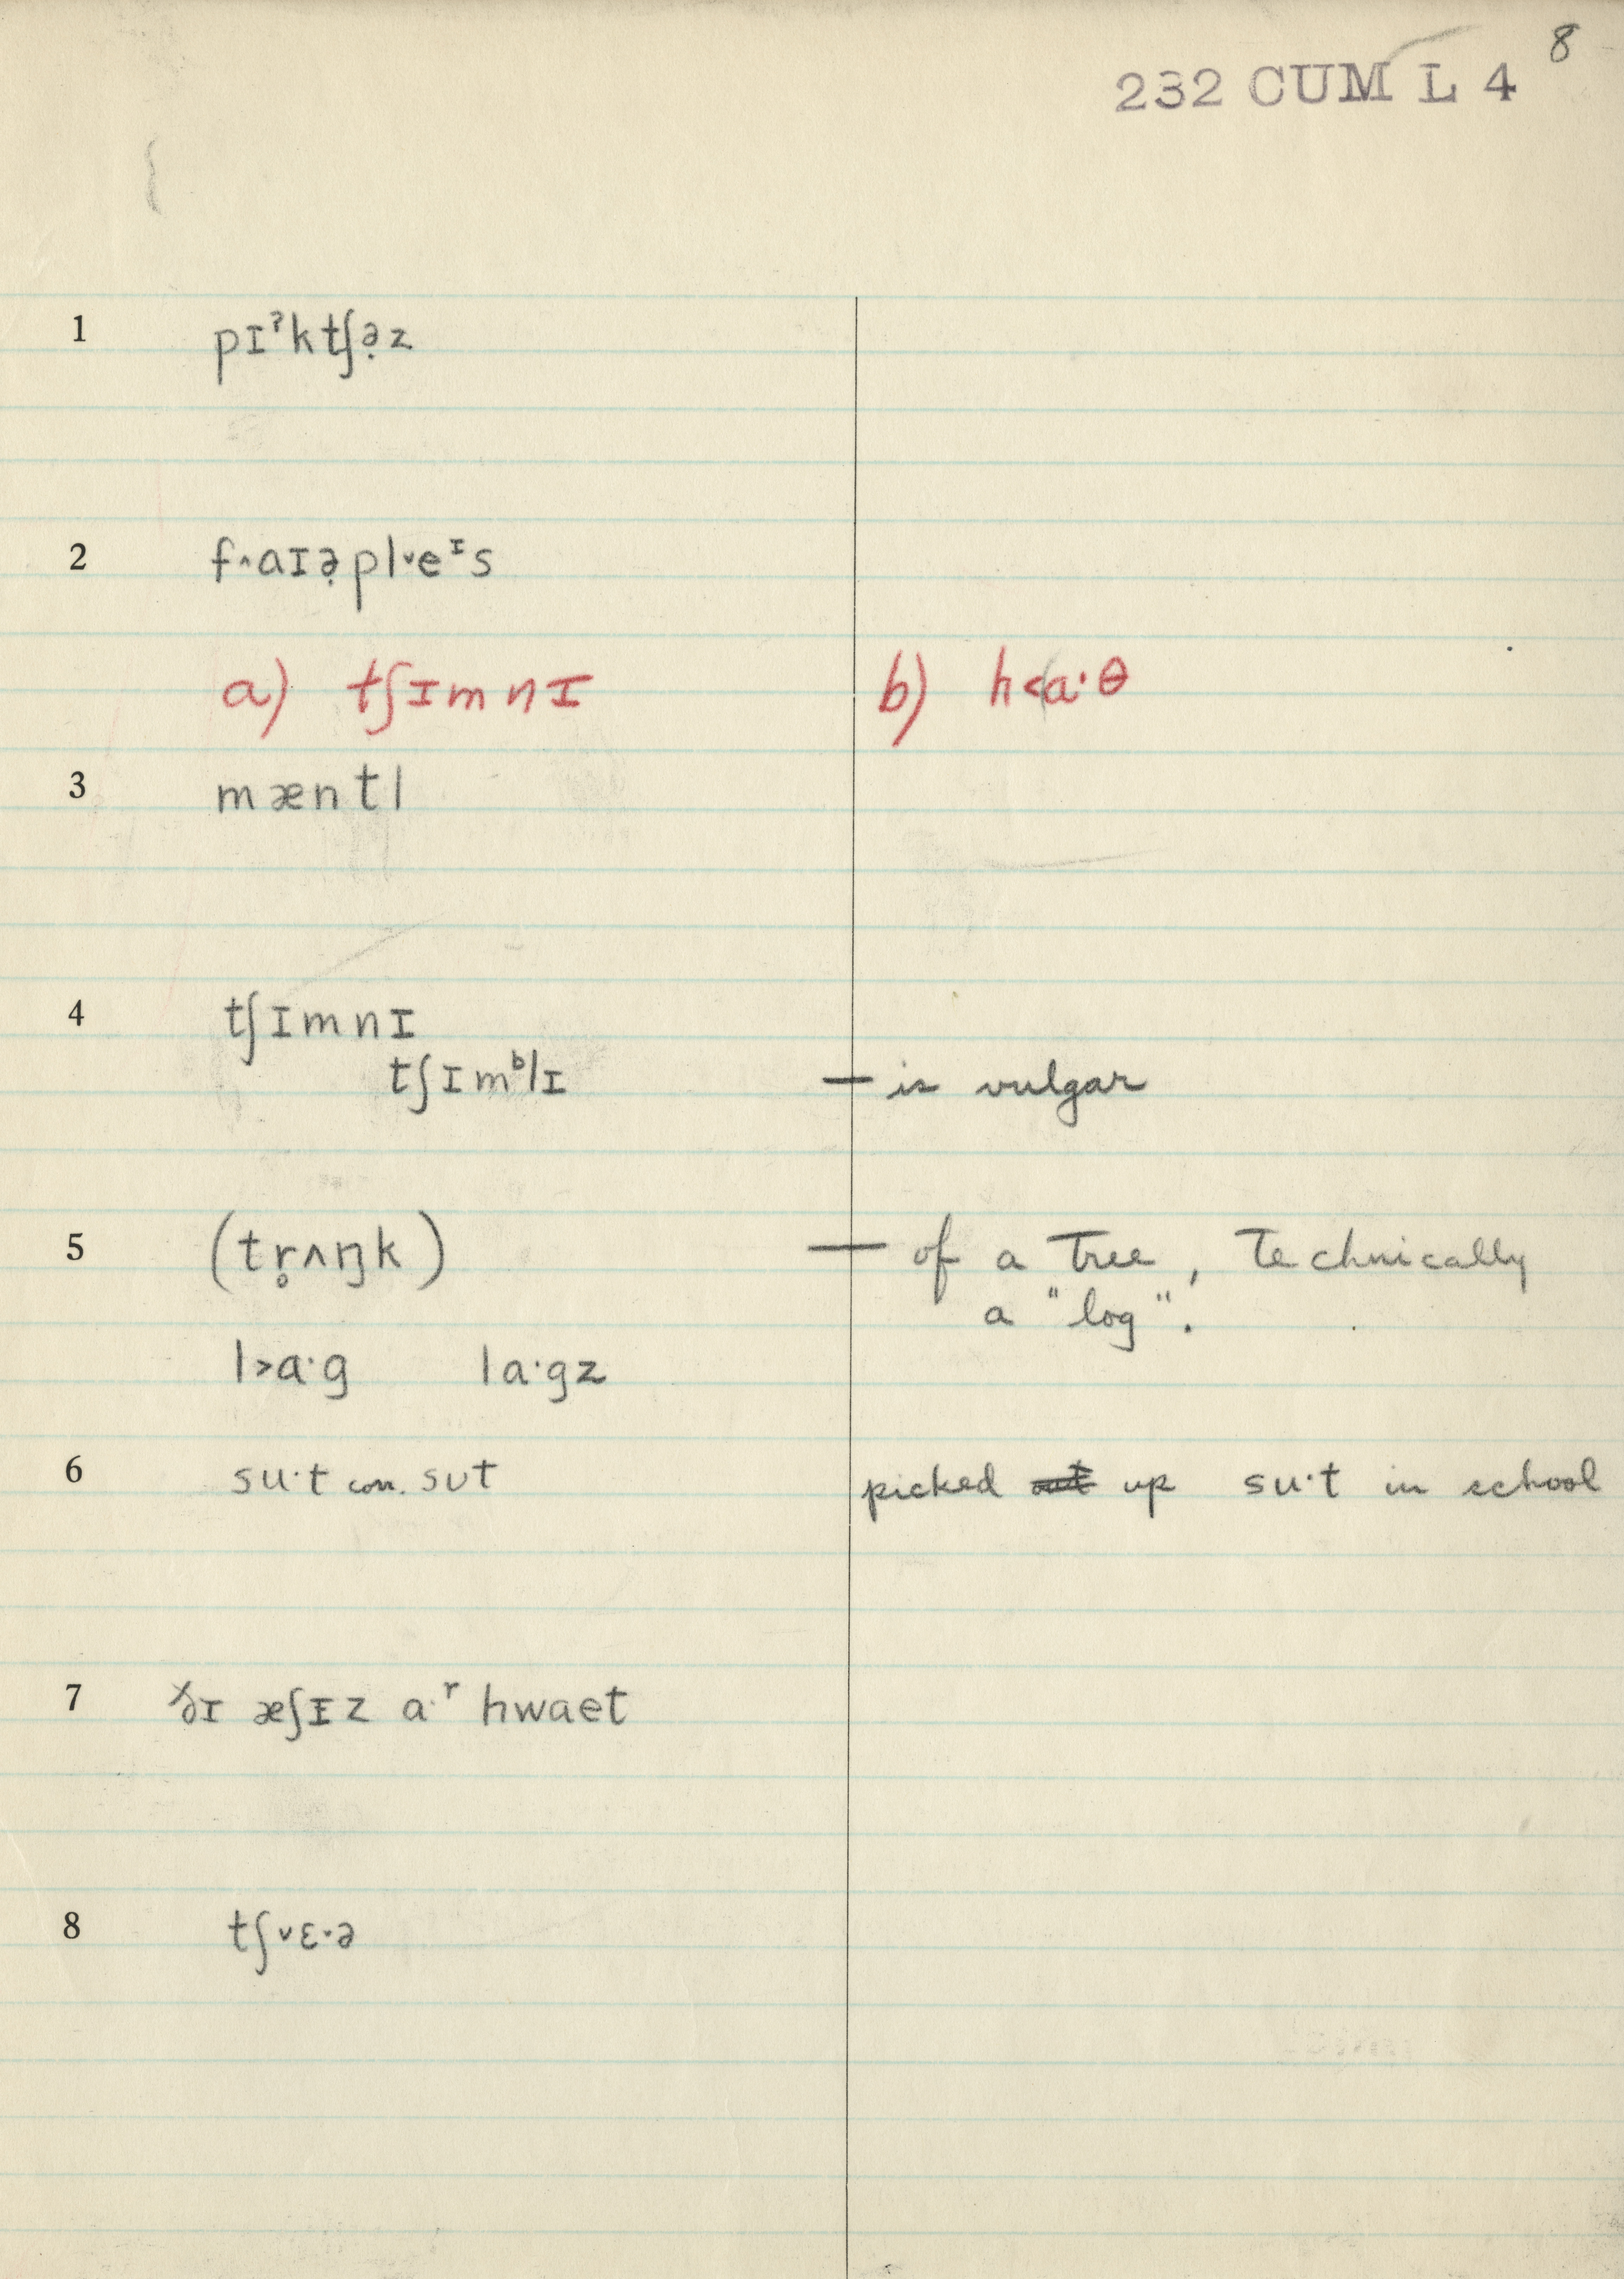 8
232 CUM L 4
1 pɪˀktʃə̣z
2 f˄aɪə̣pl˅eᶦs
a) tʃɪmnɪ b) h˂a·θ
3 mæntl
4 tʃɪmnɪ
tʃɪmᵇlɪ — is vulgar
5 (tr̥ʌŋk) — of a tree, technically
a "log".
l˃a·g la·gz
6 su·t corr. sʊt picked out up su·t in school
7 ðɪ æʃɪz a·ʳ hwaet
8 tʃ˅ɛ·ə